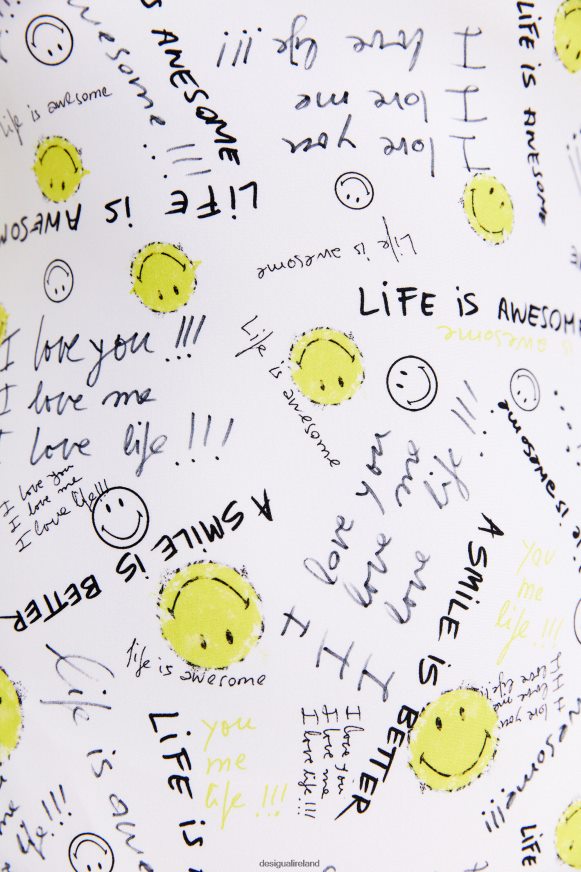 iS AWESOME
awesome !!!
I love life !!!
I love me
I love you
LiFE iS AWESOME
life is awesome
LiFE iS AWESOME
Life is awesome
LiFE iS AWESOME
is awesome
I love you !!!
I love me
I love life !!!
Life is awesome
is awesome
I love you
I love me
I love life !!!
I love you
I love me
I love life !!!
A SMiLE iS BETTER
A SMiLE iS BETTER
you
me
life !!!
life is awesome
Life is awe
I love you
I love me
I love life !!!
LiFE iS
you
me
life !!!
I love you
I love me
I love life !!!
awesome!!!
me
life !!!
LiFE
desigualireland